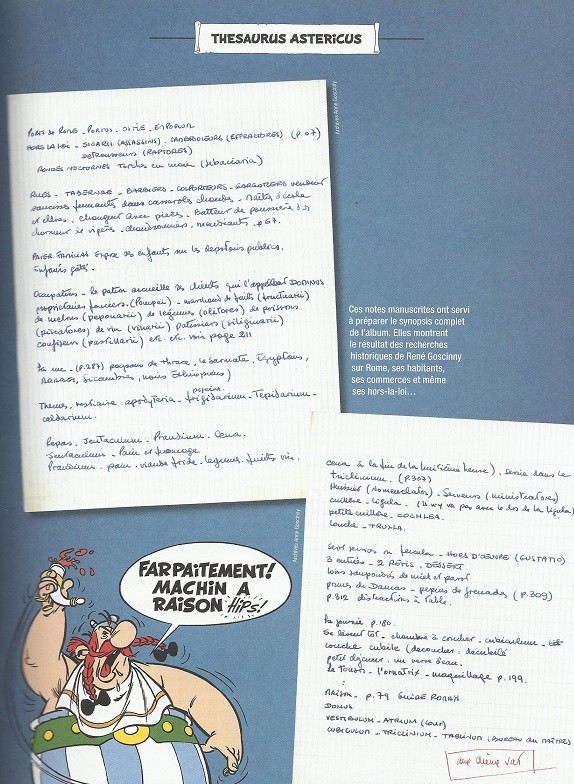 THESAURUS ASTERICUS
Archives Anne Goscinny
Ports de Rome - Portus - Ostie - Emporium
Hors la loi - Sicarii (assassins). Cambrioleurs (effractores) (p.67)
détrousseurs (raptores)
Rondes nocturnes Torches en main (sebaciaria)
Rues - Tabernae - barbiers - colporteurs - gargotiers vendeur
saucisses fumantes dans casserole chaudes - maîtres d'école
et élèves. changeur avec pièces. Batteur de poussière d'or
charmeur de vipères - chaudronniers, mendiants p 67.
Pater Familias expose ses enfants sur les dépotoirs publics.
Enfants gâtés.
Occupations - le patron accueille ses clients qui l'appellent DOMINUS
propriétaires fonciers. (Pompei) - marchand de fruits (fructuarii)
de melons (peponarii) de légumes (olitores) de poissons
(piscatores) de vin (vinarii) patissiers (siliginarii)
confiseurs (pastillarii) etc. etc. voir page 211
La rue - (p.287) paysans de thrace, le Sarmate, Egyptiens,
Arabes, Sicambres, noirs Ethiopiens)
piscine.
Thermes, vestiaire : apodyteria - frigidarium - Tepidarium -
caldarium.
Repas - Jentaculum - Prandium - Cena.
Jentaculum - Pain et fromage
Prandium - pain - viande froide - legumes - fruits vin.
Ces notes manuscrites ont servi
à préparer le synopsis complet
de l'album. Elles montrent
le résultat des recherches
historiques de René Goscinny
sur Rome, ses habitants,
ses commerces et même
ses hors-la-loi…
Archives Anne Goscinny
cena à la fin de la huitième heure). servie dans le
triclinium. (P.307)
Huissier (Nomenclator) - Serveurs (ministratores)
cuillère - ligula. (il n'y va pas avec le dos de la ligula)
petite cuillère - COCHLEA.
louche - TRULLA.
sur fercula - HORS D'ŒUVRE (GUSTATIO)
3 entrées - 2 RÔTIS - DESSERT
loirs saupoudrés de miel et pavot
prunes de Damas - pepins de grenades (p.309)
p.312 distractions à table.
La journée p.180.
Se lèvent tôt - chambre à coucher - cubiculum -
couche cubile
petit déjeuner : un verre d'eau.
le Tonsor - l'ornatrix - maquillage p.199.
Maison - p.79 GUIDE ROMAIN
DOMUS
VESTIBULUM - ATRIUM (COUR)
CUBICULUM - TRICLINIUM - TABLINUM (BUREAU DU MAÎTRE)
FARPAITEMENT!
MACHIN A
RAISON HIPS!